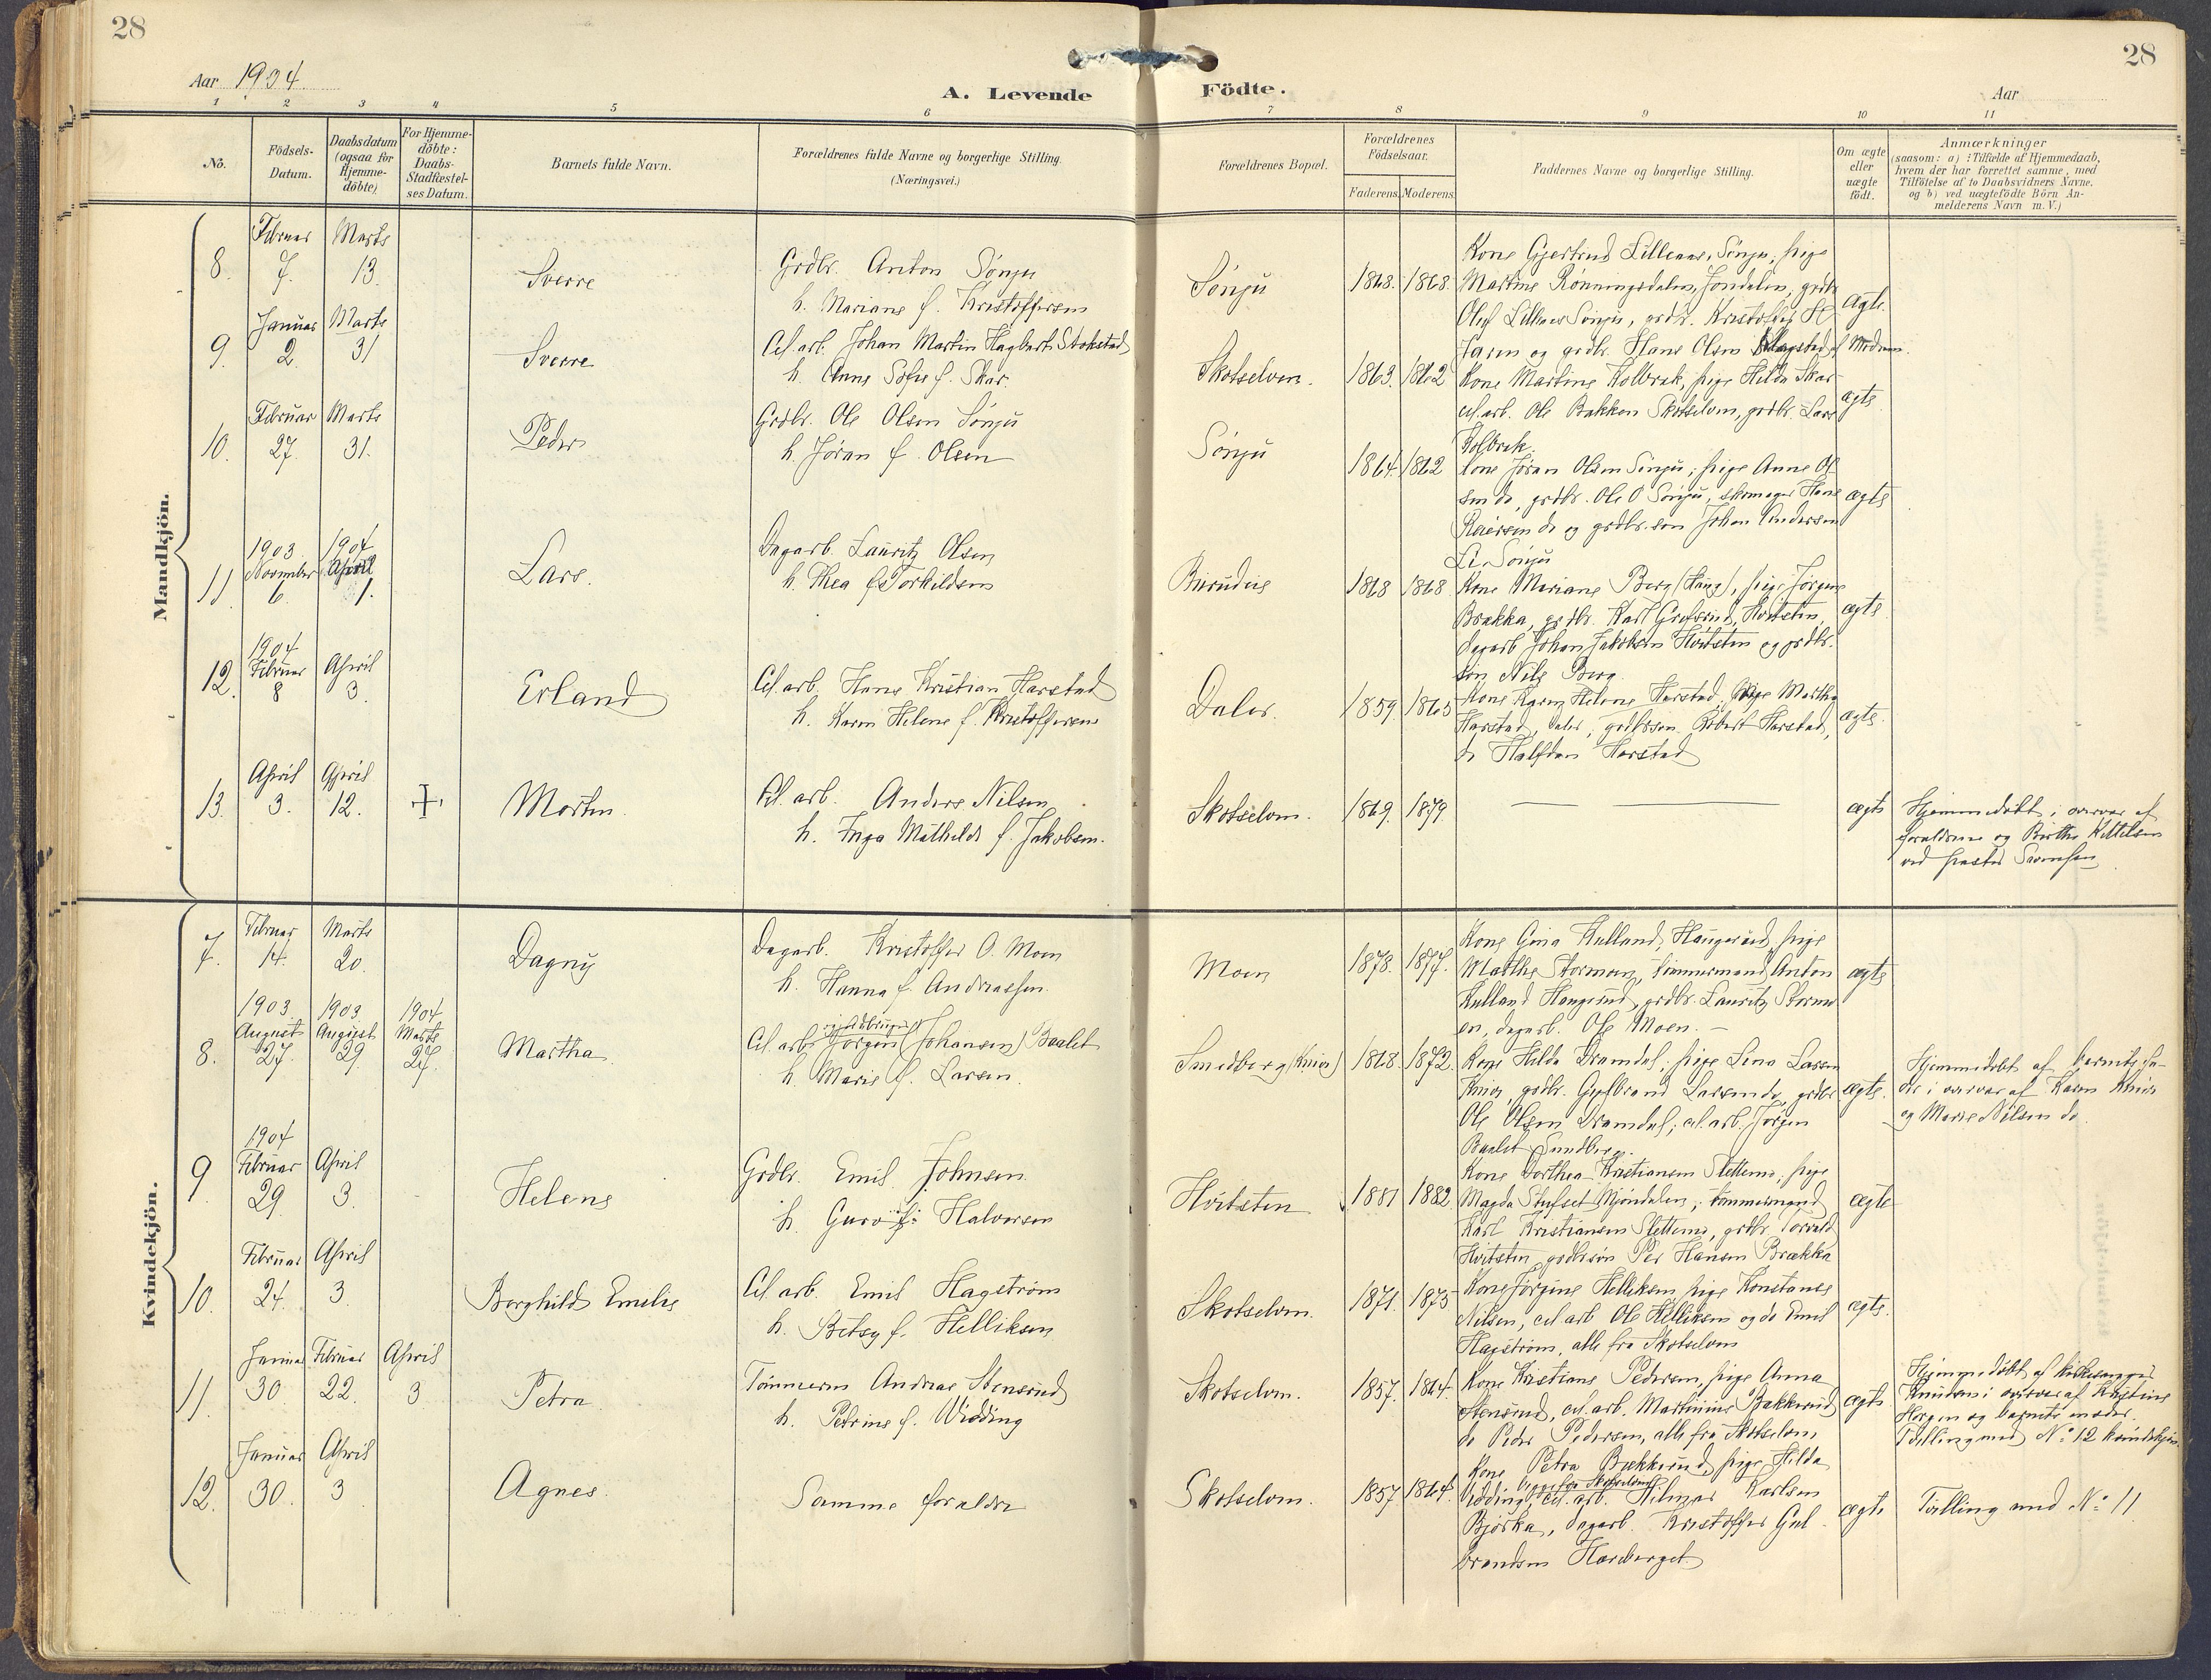 28
28
Aar 1904
A. Levende
Födte.
Aar
1 2 3 4 5 6 7 8 9 10 11
No.
Födsels-
Datum.
Daabsdatum
(ogsaa for
Hjemme-
döbte)
For Hjemme-
döbte:
Daabs-
Stadfæstel-
ses Datum.
Barnets fulde Navn.
Forældrenes fulde Navne og borgerlige Stilling.
(Næringsvei.)
Forældrenes Bopæl.
Forældrenes
Födselsaar.
Faderens. Moderens.
Faddernes Navne og borgerlige Stilling.
Om ægte
eller
uægte
födt.
Anmærkninger
(saasom: a) i Tilfælde af Hjemmedaab,
hvem der har forrettet samme, med
Tilföielse af to Daabsvidners Navne.
og b) ved uægtefödte Börn An-
melderens Navn m.V.)
Mandkjön.
8.
Februar 7.
Marts 13.
Sverre
Grdbr. Anton Sönju
h. Mariane f. Kristoffersen
Sönju
1868. 1868.
Kone Gjertrud Lillemo, Sönju, pige
Martine Rönningsdalen, Jondalen, grdbr
Oluf Sönju, grdbr. Kristoffer
og grdbr. Hans Olsen
ægte.
9.
Januar 2.
Marts 31
Sverre
Cel. arb. Johan Martin Hagbart Stokstad
h. Anne Sofie f. Skar.
Skotselven.
1863. 1862
Kone Martine Kolbræk, pige Hilda Skar
cel. arb. Ole Bakken Skotselven, grdbr. Lars
Kolbræk
ægte
10.
Februar 27.
Marts 31.
Peder
Grdbr. Ole Olsen Sönju
h. Jöran f. Olsen
Sönju
1864. 1862
Kone Jöran Olsen Sönju, pige Anne Ol
sen do, grdbr. Ole O Sönju, skomager Hans
do og grdbr.sön Johan Andersen
Li, Sönju
ægte
11.
1903 November 6.
1904 April 1.
Lars.
Dagarb. Lauritz Olsen
h. Thea f. Torkildsen
1868 1868.
Kone Mariane Berg (Haug), pige Jörgine
Brækka, grdbr. Karl Hvitsten,
dagarb Johan Jakobsen Hvitsten og grdbr.
sön Nils Berg.
ægte
12.
1904 Februar 8
April 3.
Erland
Cel. arb. Hans Kristian Harstad
h. Karen Helene f. Kristoffersen
Daler.
1859. 1865
Kone Karen Helene Harstad, Pige Martha
Harstad, Daler, grdbrsön Robert Harstad,
do Halfdan Harstad
ægte.
13.
April 3.
April 12.
+
Morten.
Cel. arb. Anders Nilsen
h. Inga Mathilde f. Jakobsen.
Skotselven.
1869. 1879
ægte
Hjemmedöbt i overvær af
forældrene og Berthe Kittilsen
ved prester Svensen
Kvindekjön.
7.
Februar 14.
Marts 20.
Dagny
Dagarb. Kristoffer O. Moen
h. Hanna f. Andreassen.
Moen
1878. 1877.
Kone Gina Hulland, Haugerud, pige
Marthe Stormoen, tömmermand Anton
Hulland Haugerud, grdbr. Lauritz Stormo
en, dagarb. Ole Moen.
ægte
8.
1903 August 27.
1903 August 29.
1904 Marts 27.
Martha
Cel. arb. Jörgen (Johansen) Baalet
h. Marie f. Larsen.
Smedberg (Knive)
1868. 1872.
Kone Hilda Dramdal, pige Lina Larsen
Knive, grdbr. Gulbrand Larsen do, grdbr.
Ole Olsen Dramdal, cel. arb. Jörgen
Baalet Smedberg.
ægte.
Hjemmedöbt af barnets fa-
der i overvær af Karen Knive
og Marie Nilsen do.
9
1904 Februar 29.
April 3.
Helene
Grdbr. Emil Johnsen
h. Guro f. Halvorsen
Hvitsten
1881 1882.
Kone Dorthea Kristiansen Slettemo, pige
Magda Mjöndalen, tömmermand
Karl Kristiansen Slettemo, grdbr Torvald
Hvitsten, grdbrsön Per Hansen Brækka
ægte
10.
Februar 24.
April 3.
Borghild Emelie
Cel. arb. Emil Hagström
h. Betsy f. Helliksen
Skotselven.
1871. 1875
Kone Jörgine Helliksen, pige Konstanse
Nilsen, cel arb Ole Helliksen og do Emil
Hagström, alle fra Skotselven
ægte.
11.
Januar 30
Februar 22.
April 3
Petra
Tömmerm Andreas Stensrud
h. Petrine f. Widding
Skotselven.
1857. 1864.
Kone Kristiane Pedersen, pige Anna
Stensrud, cel. arb. Martinius Bakkerud
do Peder Pedersen, alle fra Skotselven,
ægte
Hjemmedöbt af kirkesanger
Knudsen i overvær af Kristine
Horgen og barnets moder.
Tvilling med No 12 kvindekjön.
12.
Januar 30.
April 3
Agnes.
Samme forældre
Skotselven.
1857. 1864.
Kone Petra Bakkerud, pige Hilda
Widding, begge fra Skotselven, cel. arb. Hilmar Karlsen
Björka, dagarb. Kristoffer Gul
brandsen Hareberget
ægte
Tvilling med No 11.